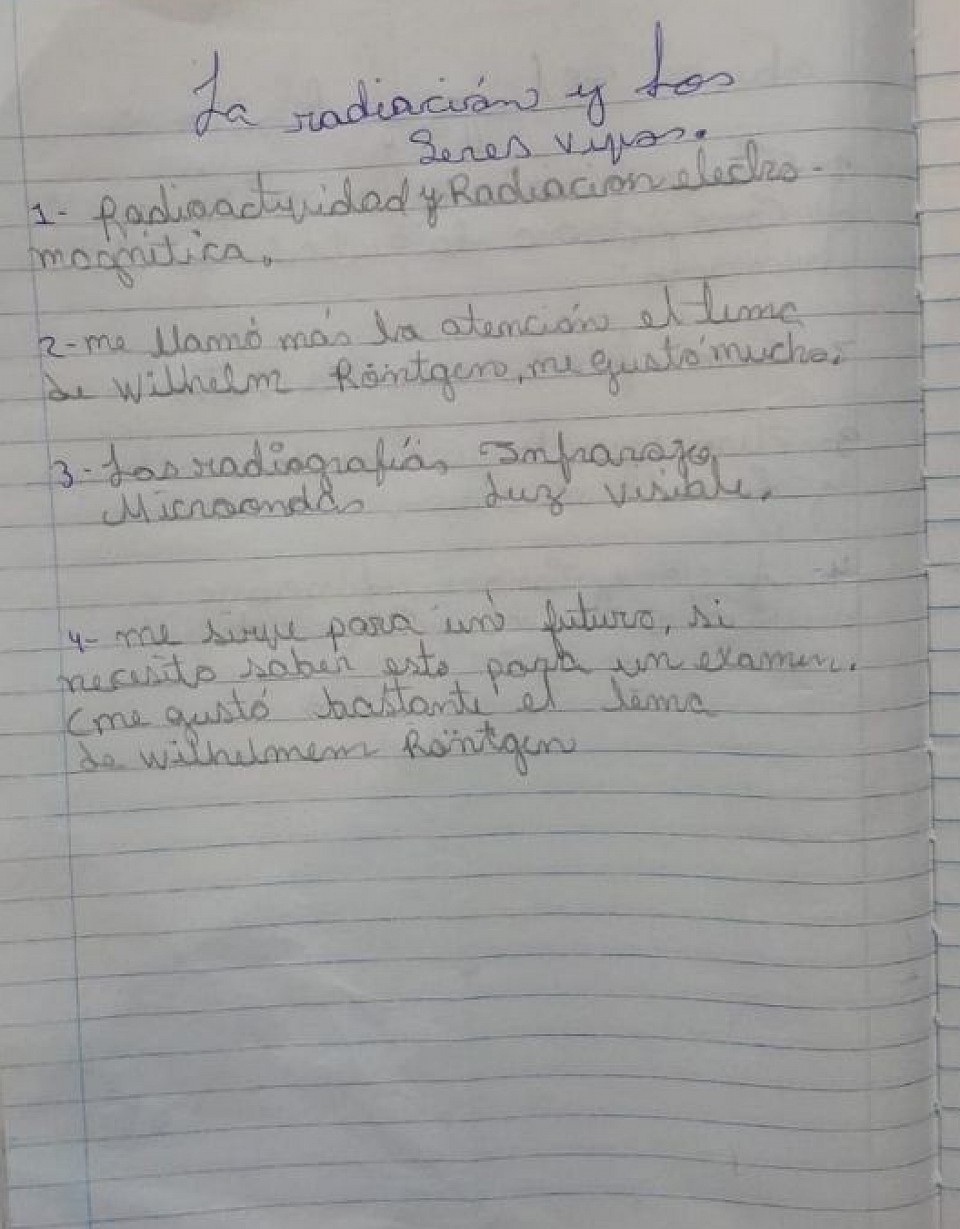 La radiación y Los
Seres vivos.
1- Radioactividad y Radiacion electro-
magnitica.
2- me llamó más la atención el tema
de Wilhelm Röntgen, me gustó mucho.
3- Las radiografiás Infrarojo,
Microondas Luz visible.
4- me sirve para un futuro, si
necesito saber esto para un examen.
(me gustó bastante el tema
de wilhelmem Röntgen